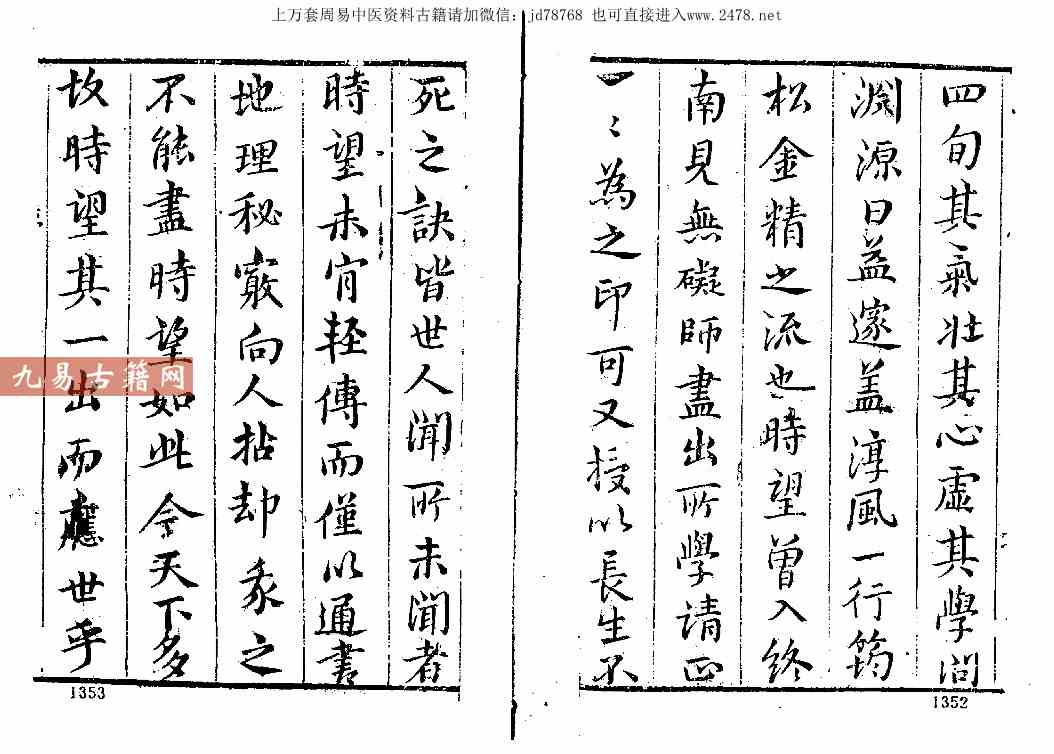 上万套周易中医资料古籍请加微信：jd78768 也可直接进入www.2478.net
四旬其氣壯其心虛其學問
淵源日益邃盖淳風一行筠
松金精之流也時望曽入終
南見無礙師盡出所學请正
一〻為之印可又授以長生不
1352
死之訣皆世人聞所未聞者
時望未肯轻傳而僅以通書
地理秘竅向人拈却彖之
不能盡時望如此今天下多
故時望其一出而應世乎
1353
九易古籍网